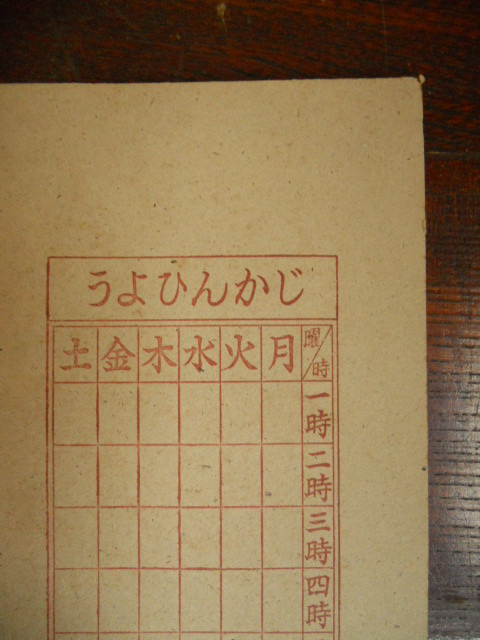 じかんひよう
曜/時 月 火 水 木 金 土
一時
二時
三時
四時